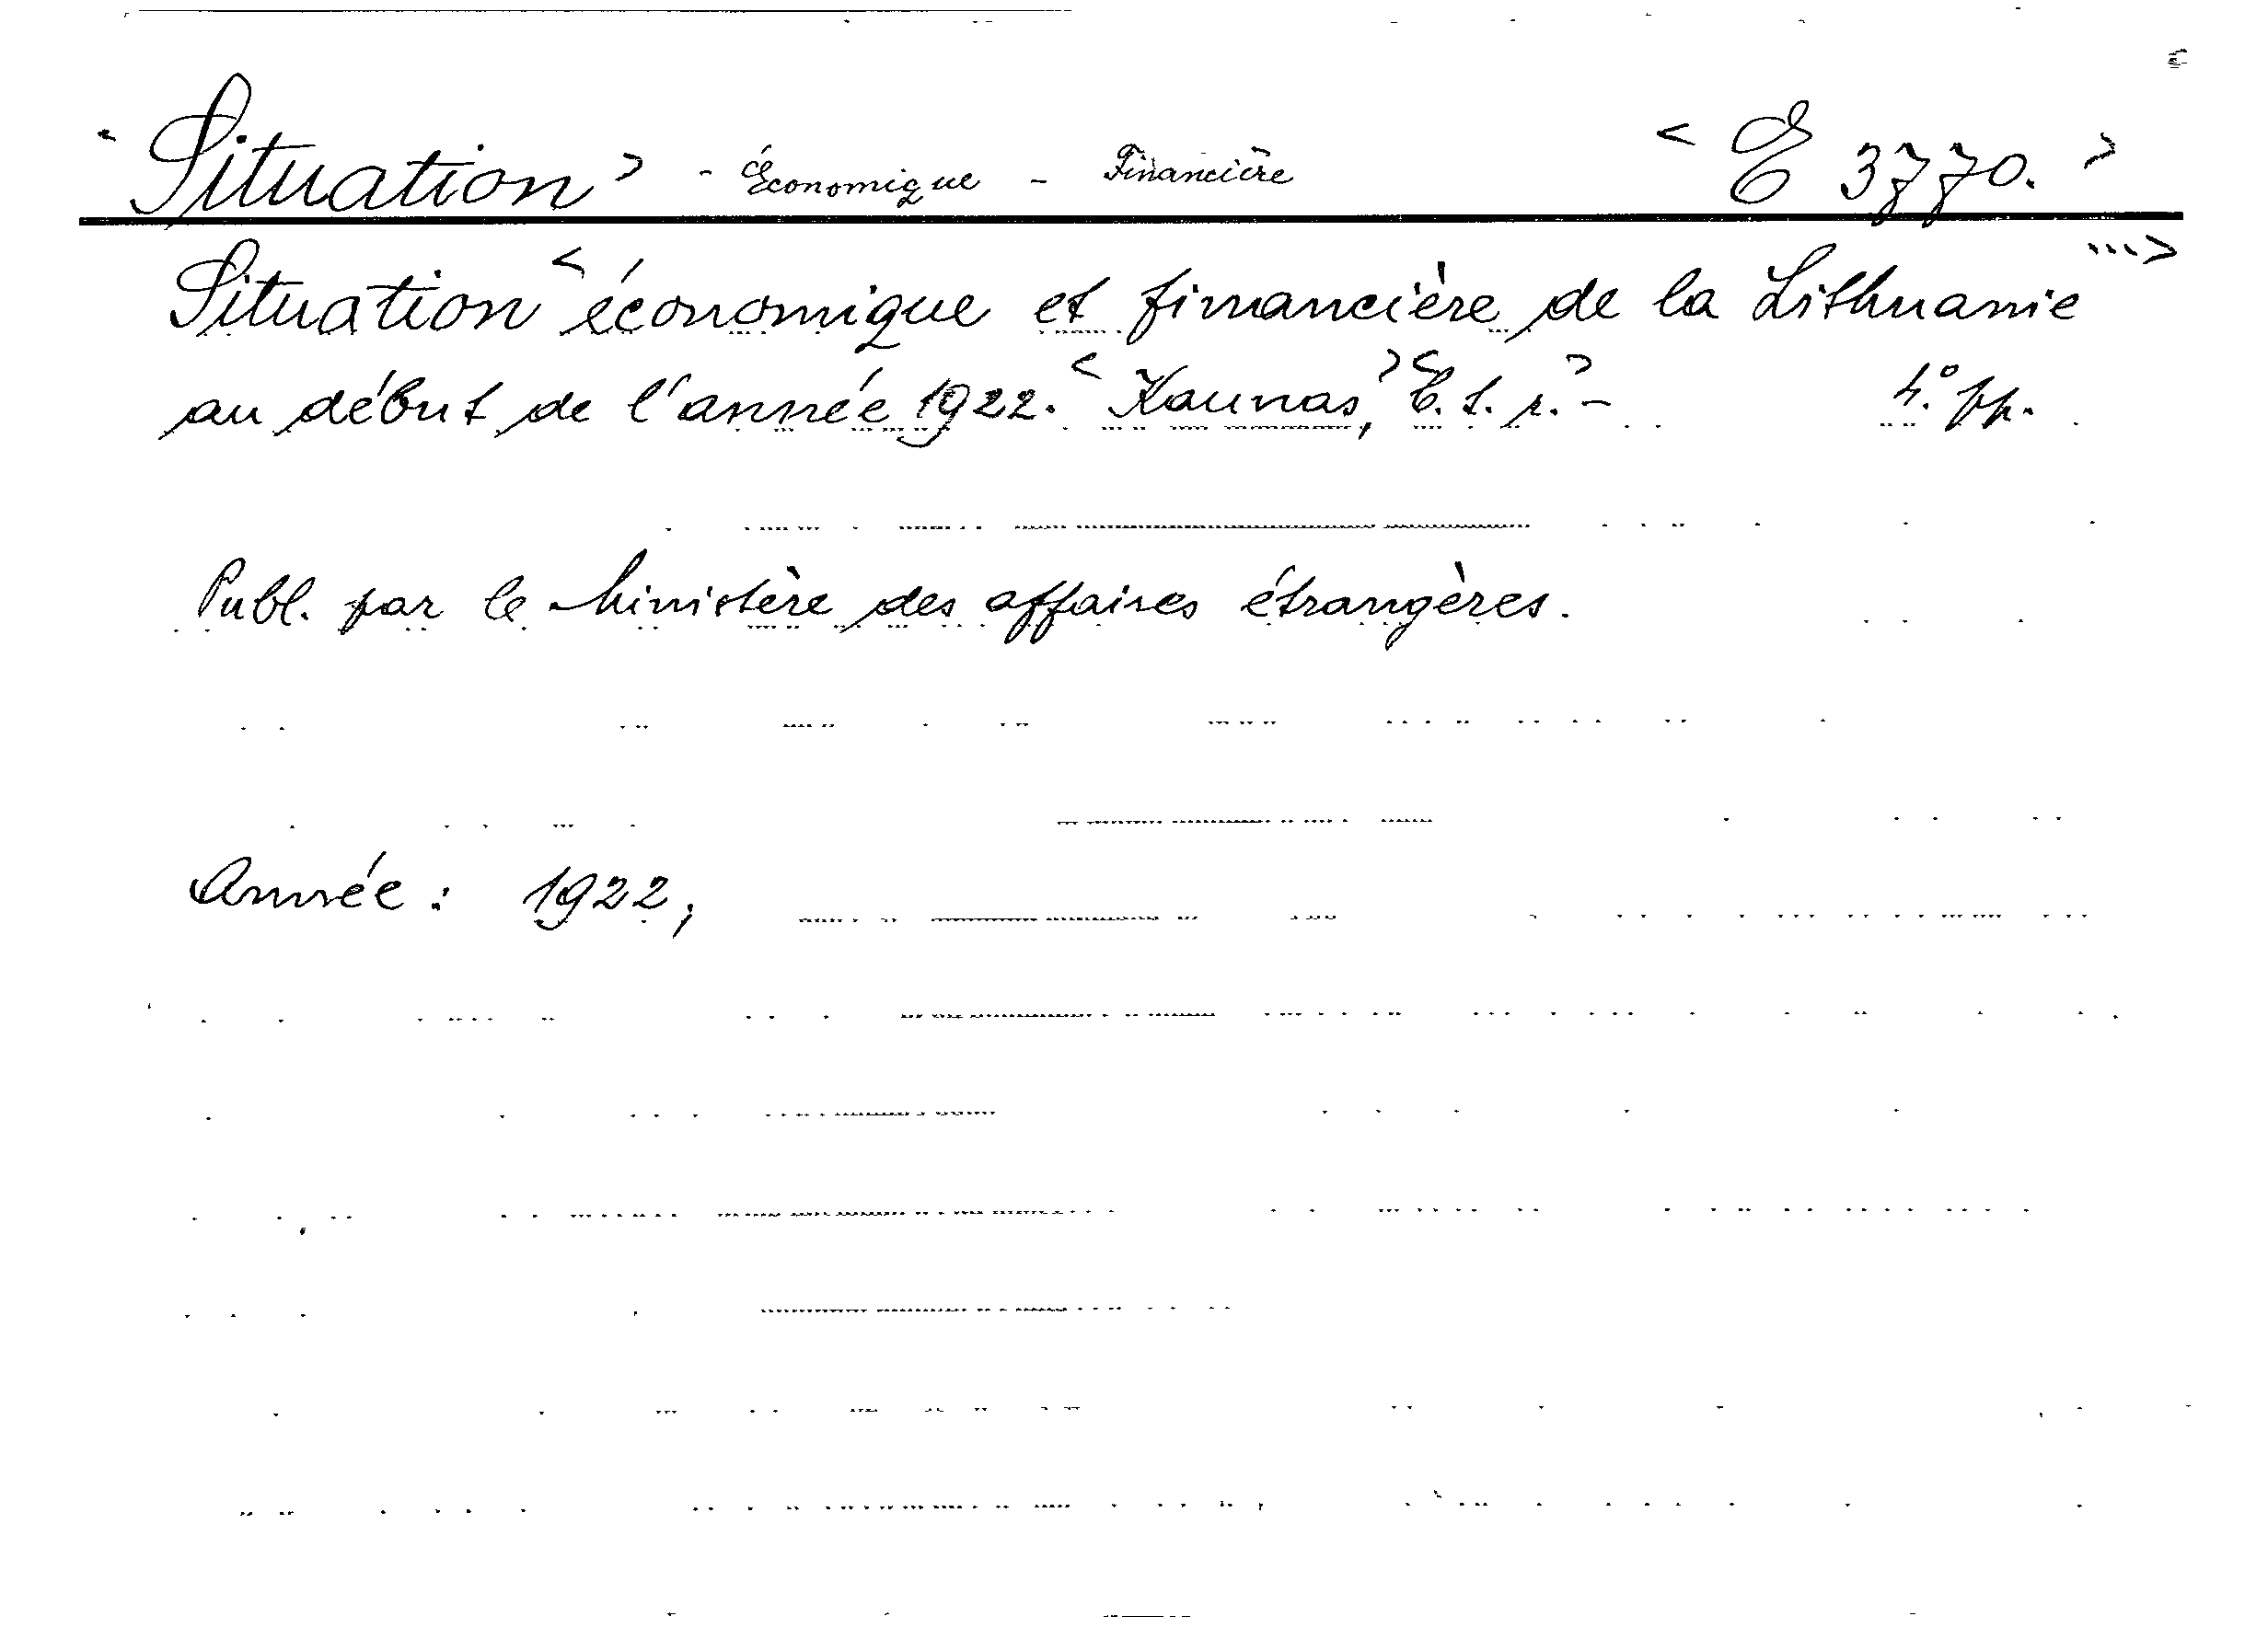 < Situation > - Économique - Financière < E 3770. >
Situation < économique et financière de la Lithuanie ...>
au début de l'année 1922. < Kaunas, > < E. s. r. > - 4.° pp.
Publ. par le Ministère des affaires étrangères.
Année : 1922,